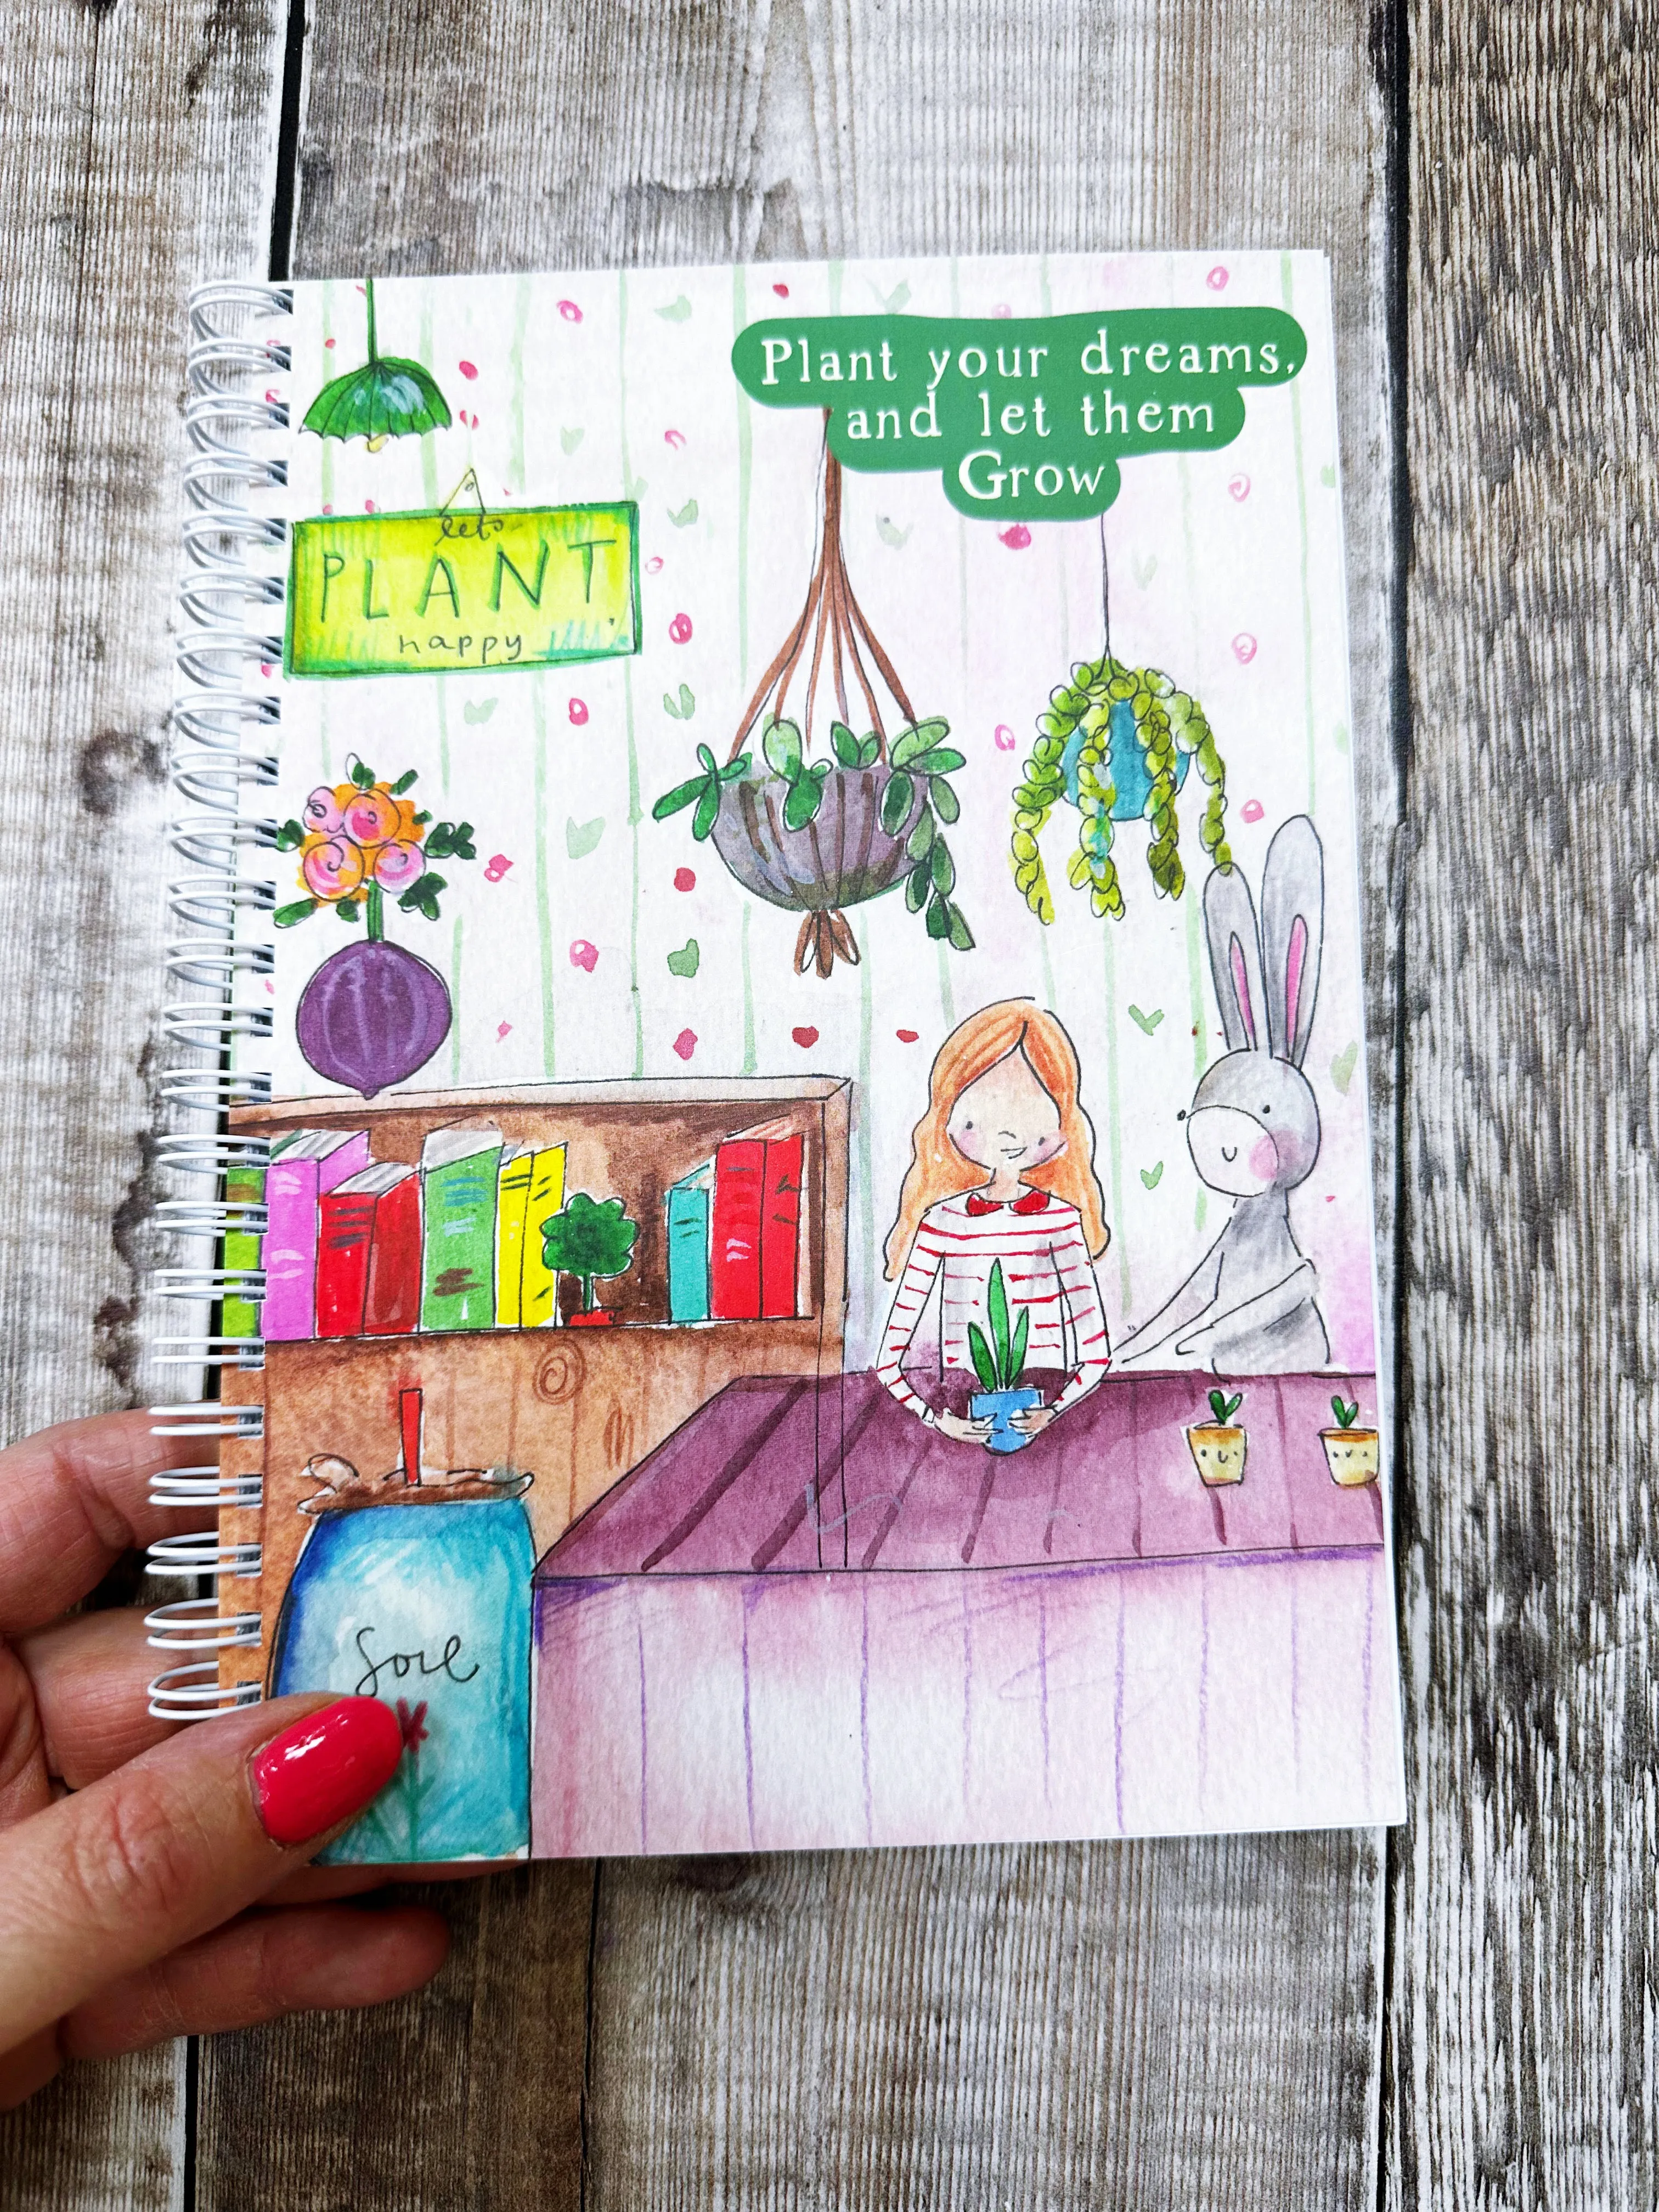 Plant your dreams,
and let them
Grow
lets
PLANT
happy
Soil